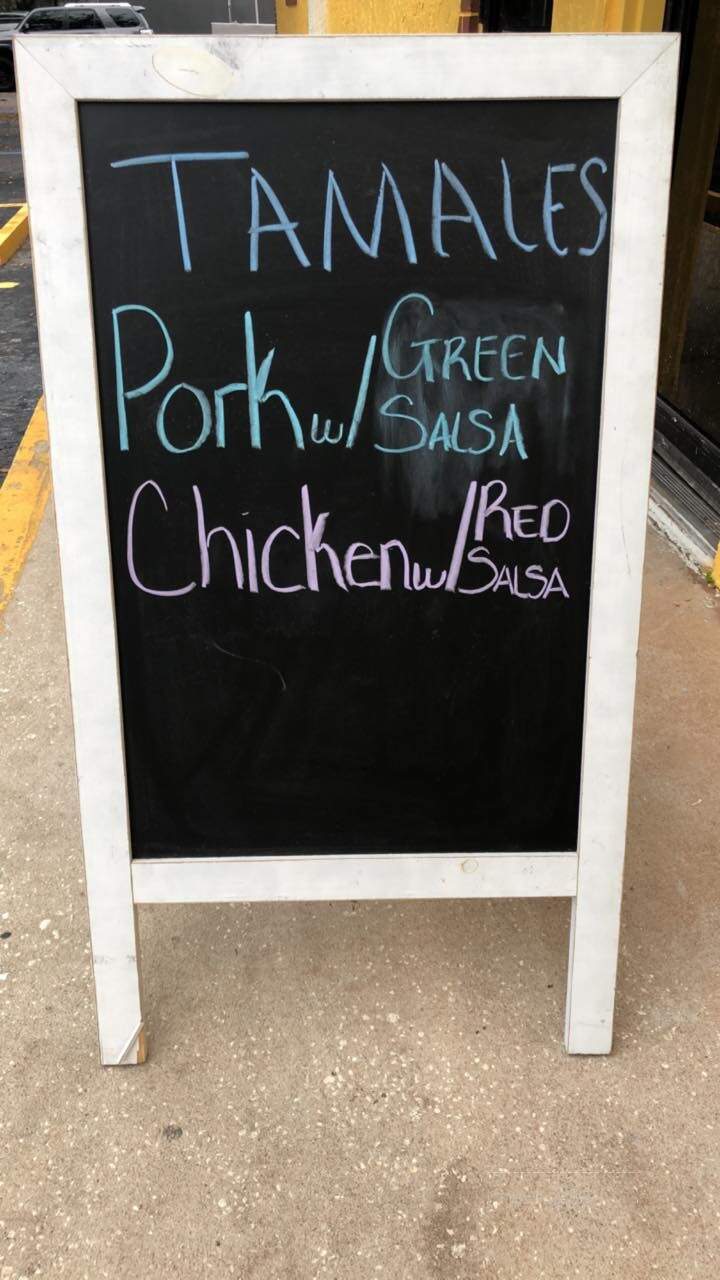 TAMALES
Pork w/ GREEN
SALSA
Chicken w/ RED
SALSA